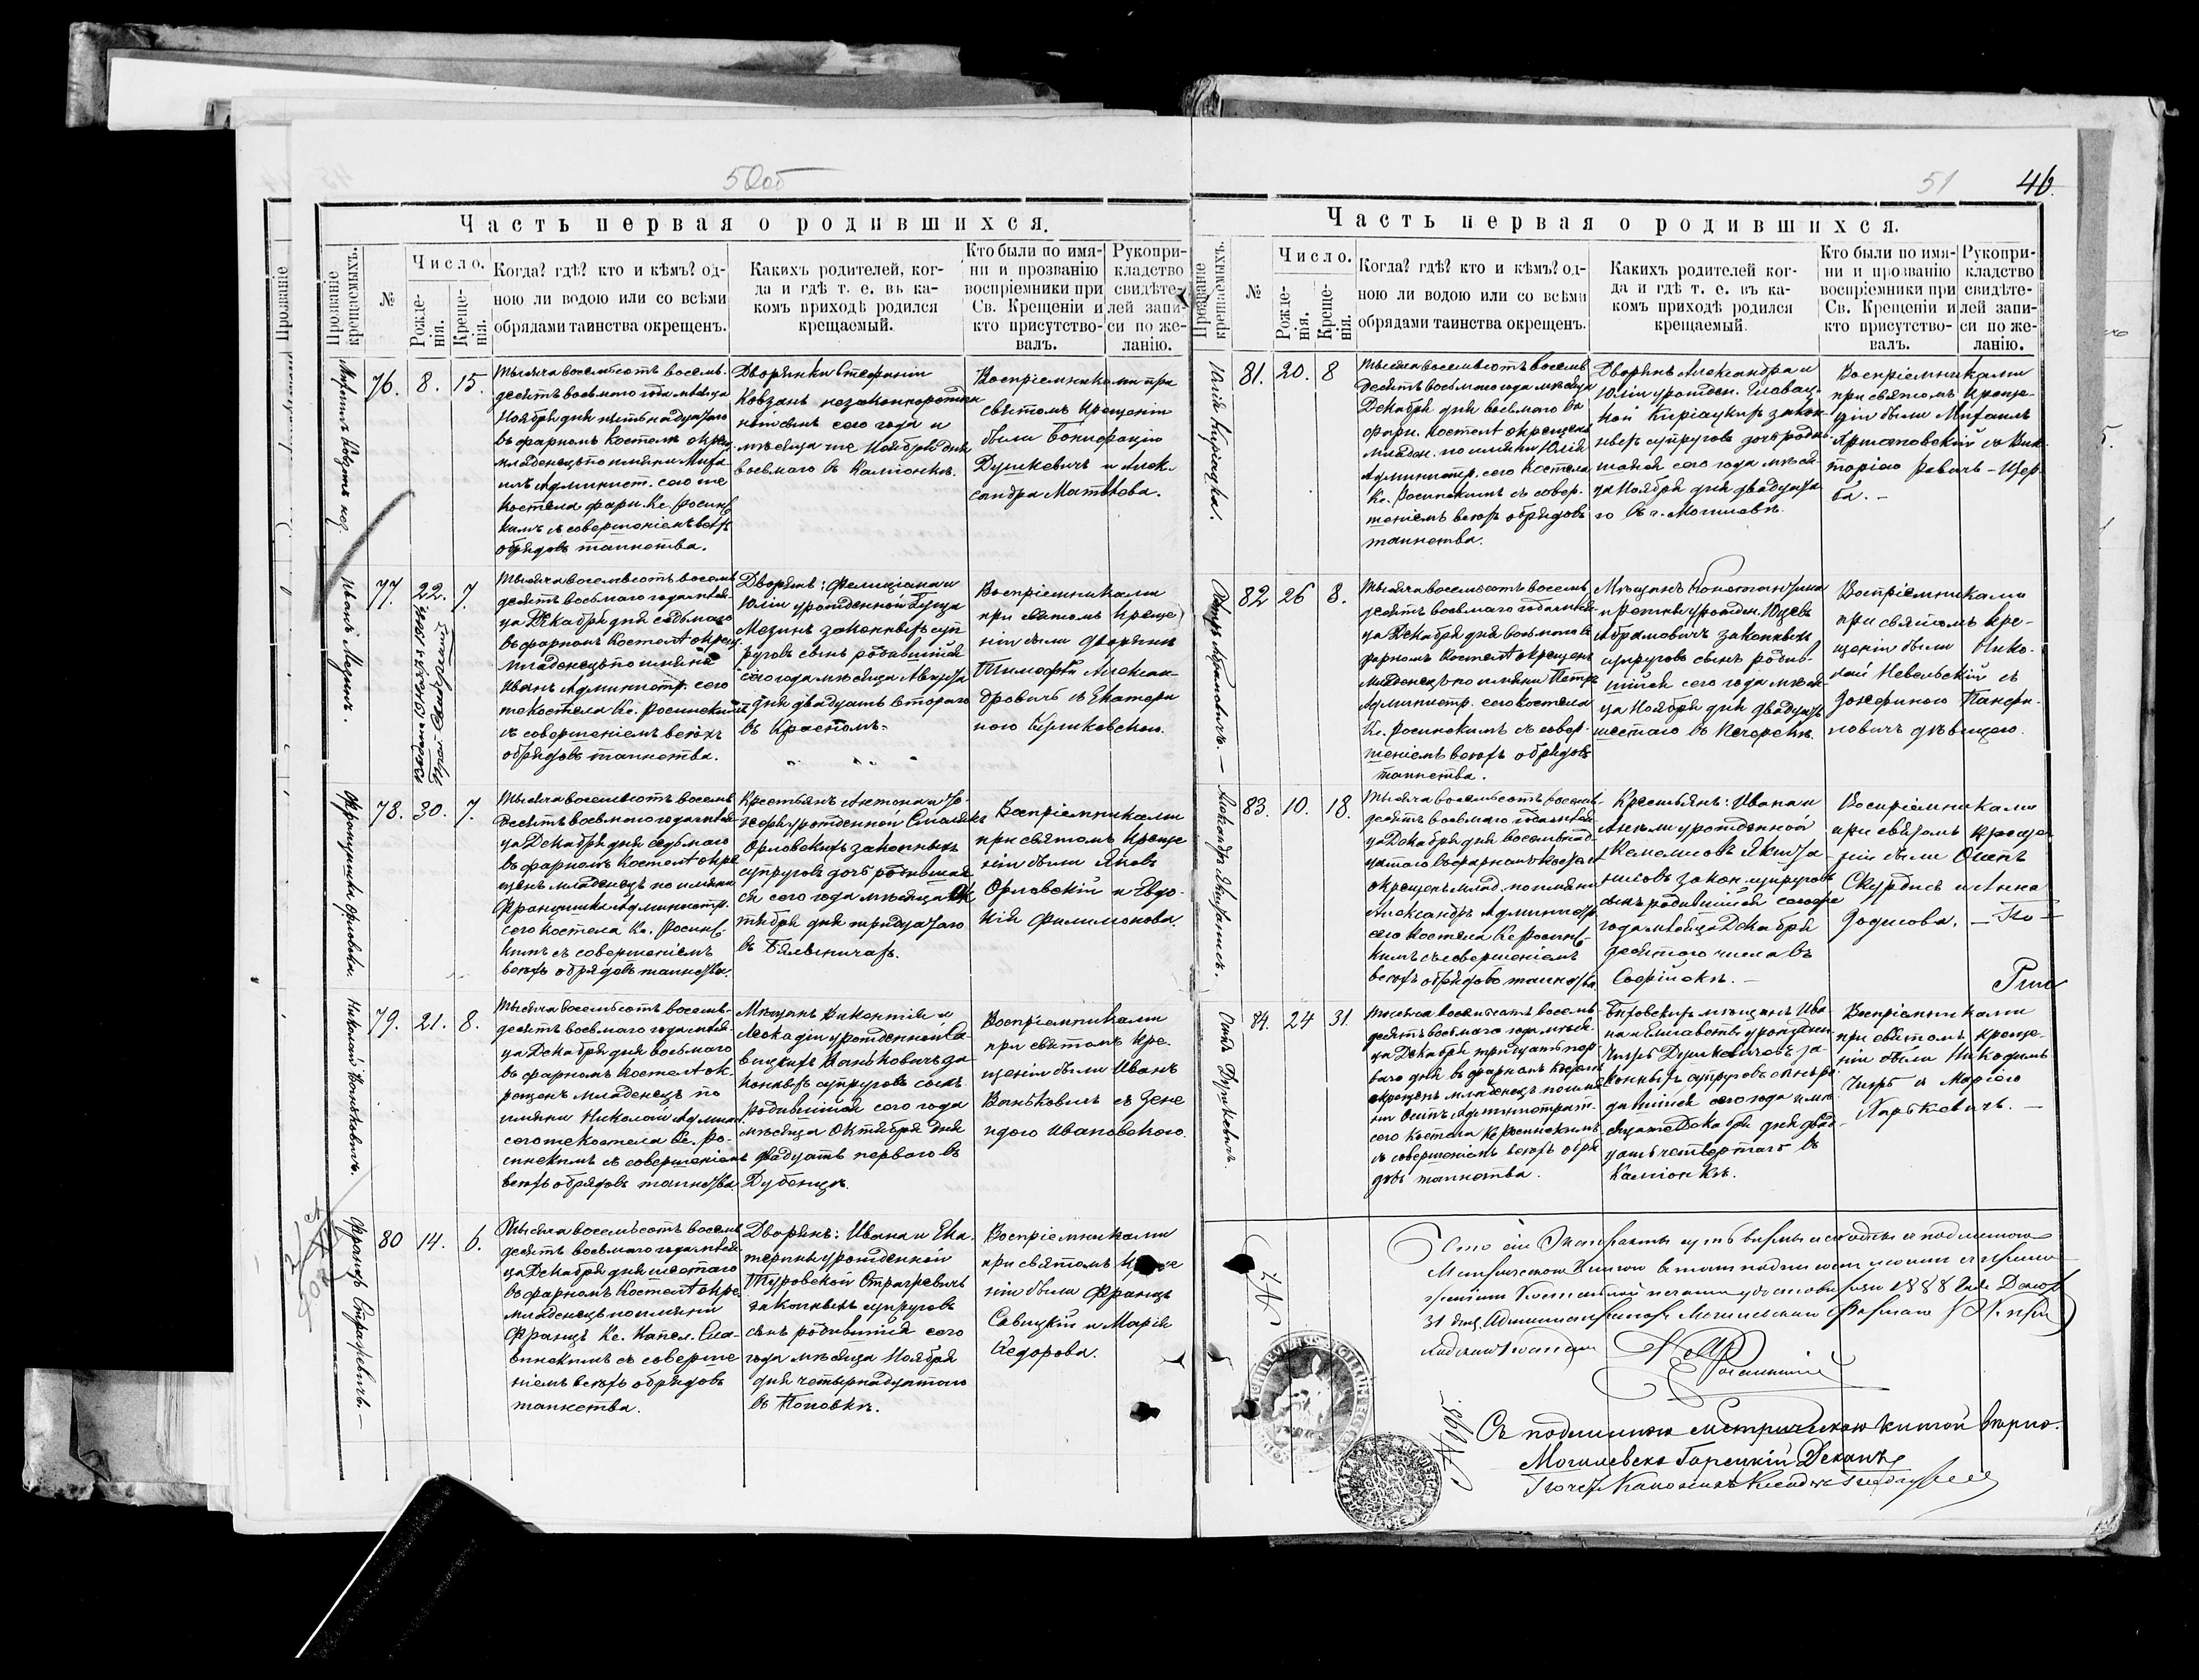 50об
Часть первая о родившихся.
Прозваніе крещаемыхъ.
№
Число.
Рожде-
нія.
Креще-
нія.
Когда? гдѣ? кто и кѣмъ? од-
ною ли водою или со всѣми
обрядами таинства окрещенъ.
Какихъ родителей, ког-
да и гдѣ т. е. въ ка-
комъ приходѣ родился
крещаемый.
Кто были по имя-
ни и прозванію
воспріемники при
Св. Крещеніи и
кто присутство-
валъ.
Рукопри-
кладство
свидѣте-
лей запи-
си по же-
ланію.
76. 8. 15.
Тысяча восемьсотъ восемь-
десятъ восьмаго года мѣсяца
Ноября дня пятьнадцатаго
въ фарномъ костелѣ окрещ.
младенецъ по имяни Миха-
илъ Админист. сего же
костела фарн. Кс. Росинс
кимъ съ совершеніемъ всѣхъ
обрядовъ таинства.
Дворянки Стефаніи
Ковзанъ незаконнорожден
ный сынъ сего года и
мѣсяца же Ноября дня
восьмаго въ Каміонкѣ.
Воспріемниками при
святомъ Крещеніи
были Бонифацій
Душкевичъ и Алек-
сандра Матѣева.
Иванъ Мезинъ.
77. 22. 7.
Тысяча восемьсотъ восемь
десятъ восьмаго года мѣся-
ца Декабря дня седьмаго
въ фарномъ костелѣ окрещ.
младенецъ по имяни
Иванъ Администр. сего
же костела Кс. Росинскимъ
съ совершеніемъ всѣхъ
обрядовъ таинства.
Дворянъ: Фелиціана и
Юліи урожденной Буща
Мезинъ законныхъ суп
руговъ сынъ родившійся
сего года мѣсяца Августа
дня двадцать втораго
въ Красномъ.
Воспріемниками
при святомъ Креще
ніи были дворянинъ
Тимофѣй Алексан-
дровичъ съ Екатери
ною
Францишка Орловска.
78. 30. 7.
Тысяча восемьсотъ восемь
десятъ восьмаго года мѣся-
ца Декабря дня седьмаго
въ фарномъ костелѣ окре
щенъ младенецъ по имяни
Францишка Администр.
сего костела Кс. Росинс-
кимъ съ совершеніемъ
всѣхъ обрядовъ таинства.
Крестьянъ Антона и Іо-
зефы урожденной
Орловскихъ законныхъ
супруговъ дочь родившая
ся сего года мѣсяца Ок
тября дня тридцатаго
въ Бялыничахъ.
Воспріемниками
при святомъ Креще
ніи были Яковъ
Орловскій и Евдо-
кія Филимонова.
Николай Ваньковичъ.
79. 21. 8.
Тысяча восемьсотъ восемь-
десятъ восьмаго года мѣся-
ца Декабря дня восьмаго
въ фарномъ костелѣ ок-
рещенъ младенецъ по
имяни Николай Админ.
сего же костела Кс. Ро-
синскимъ съ совершеніемъ
всѣхъ обрядовъ таинства
Мѣщанъ Викентія и
Леокадіи урожденной Са-
вицкихъ Ваньковичъ за
конныхъ супруговъ сынъ
родившійся сего года
мѣсяца Октября дня
двадцать перваго въ
Дубенцѣ.
Воспріемниками
при святомъ Кре-
щеніи были Иванъ
Ваньковичъ съ Зене
идою Ивановскою.
Францъ Страхревичъ.
80 14. 6.
Тысяча восемьсотъ восемь
десятъ восьмаго года мѣся-
ца Декабря дня шестаго
въ фарномъ костелѣ окре.
младенецъ по имяни
Францъ Кс. Капел. Сла-
винскимъ съ соверше
ніемъ всѣхъ обрядовъ
таинства.
Дворянъ: Ивана и Ека-
терины урожденной
Туровской Страхревичъ
законныхъ супруговъ
сынъ родившійся сего
года мѣсяца Ноября
дня четырнадцатаго
въ Поповкѣ.
Воспріемниками
при святомъ Креще
ніи были Францъ
Савицкій и Марія
Ѳедорова.
51 46.
Часть первая о родившихся.
Прозваніе крещаемыхъ.
№
Число.
Рожде-
нія.
Креще-
нія.
Когда? гдѣ? кто и кѣмъ? од-
ною ли водою или со всѣми
обрядами таинства окрещенъ.
Какихъ родителей ког-
да и гдѣ т. е. въ ка-
комъ приходѣ родился
крещаемый.
Кто были по имя-
ни и прозванію
воспріемники при
Св. Крещеніи и
кто присутство-
валъ.
Рукопри-
кладство
свидѣте-
лей запи-
си по же-
ланію.
81. 20. 8
Тысяча восемьсотъ восемь
десятъ восьмаго года мѣсяца
Декабря дня восьмаго въ
фарн. костелѣ окрещена
младен. по имяни Юлія
Администр. сего костела
Кс. Росинскимъ съ совер-
шеніемъ всѣхъ обрядовъ
таинства.
Дворянъ Александра и
Юліи урожден. Главац-
кой Киріацкихъ закон-
ныхъ супруговъ дочь роди-
шаяся сего года мѣся-
ца Ноября дня двадцата
го въ г. Могилевѣ.
Воспріемниками
при святомъ Креще-
ніи были Михаилъ
Аршановскій съ Вик-
торіею
Петръ Абрамовичъ.
82 26 8.
Тысяча восемьсотъ восемь
десятъ восьмаго года мѣся-
ца Декабря дня восьмаго въ
фарномъ костелѣ окрещенъ
младенецъ по имяни Петръ
Администр. сего костела
Кс. Росинскимъ съ совер-
шеніемъ всѣхъ обрядовъ
таинства.
Абрамовичъ законныхъ
супруговъ сынъ родив-
шійся сего года мѣся-
ца Ноября дня двадцать
шестаго въ Печерскѣ.
Воспріемниками
при святомъ Кре-
щеніи были Нико-
лай Невельскій съ
Іозефиною Панфи-
ловичъ дѣвицею.
83. 10. 18.
Тысяча восемьсотъ восемь-
десятъ восьмаго года мѣся-
ца Декабря дня восемьнад-
цатаго въ фарномъ костелѣ
окрещенъ млад. по имяни
Александръ Администр.
сего костела Кс Росинс-
кимъ съ совершеніемъ
всѣхъ обрядовъ таинства
Крестьянъ: Ивана и
Анели урожденной
законн. супруговъ
сынъ родившійся сего же
года мѣсяца Декабря
десятаго числа въ
Софійскѣ.
Воспріемниками
при святомъ Креще
ніи были Осипъ
Скурдись и Анна
Зодисова.
Осипъ Душкевичъ.
84. 24 31.
Тысяча восемьсотъ восемь
десятъ восьмаго года мѣся-
ца Декабря тридцать пер
ваго дня въ фарномъ костелѣ
окрещенъ младенецъ по имя
ни Осипъ Администрат.
сего костела Кс Росинскимъ
съ совершеніемъ всѣхъ обря
довъ таинства.
Быховскихъ мѣщанъ Ива
на и Елисаветы урожден.
Чижъ Душкевичовъ за-
конныхъ супруговъ сынъ ро
дившійся сего года и мѣ
сяца же Декабря дня двад
цать четвертаго въ
Каміонкѣ.
Воспріемниками
при святомъ Креще-
ніи были Никодимъ
Чижъ и Марія
Харькевичъ.
Что сіи Экстракты суть вѣрны и сходны съ подлинною
Метрическою Книгою въ томъ
1888 года Декаб
31 дня. Администраторъ Могилевскаго Фарнаго
Росинскій
Съ подлинною метрическою книгой вѣрно.
Могилевско Горецкій Деканъ